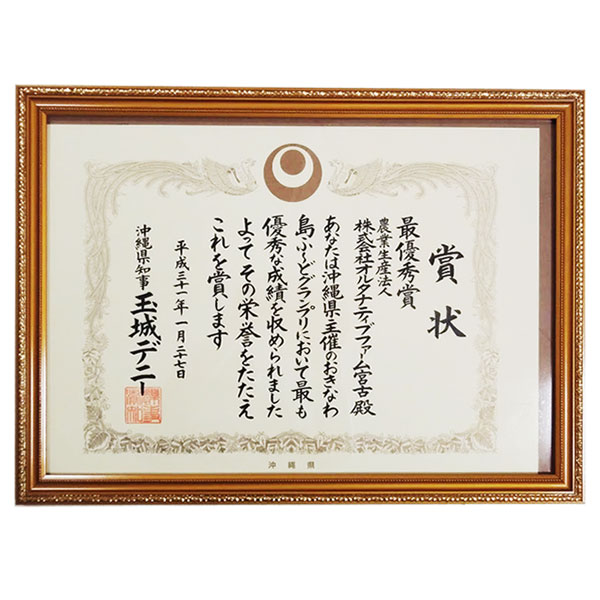 賞状
最優秀賞
農業生産法人
株式会社オルタナティブファーム宮古殿
あなたは沖縄県主催のおきなわ
島ふ~どグランプリにおいて最も
優秀な成績を収められました
よってその栄誉をたたえ
これを賞します
平成三十一年一月二十七日
沖縄県知事 玉城デニー
沖縄県